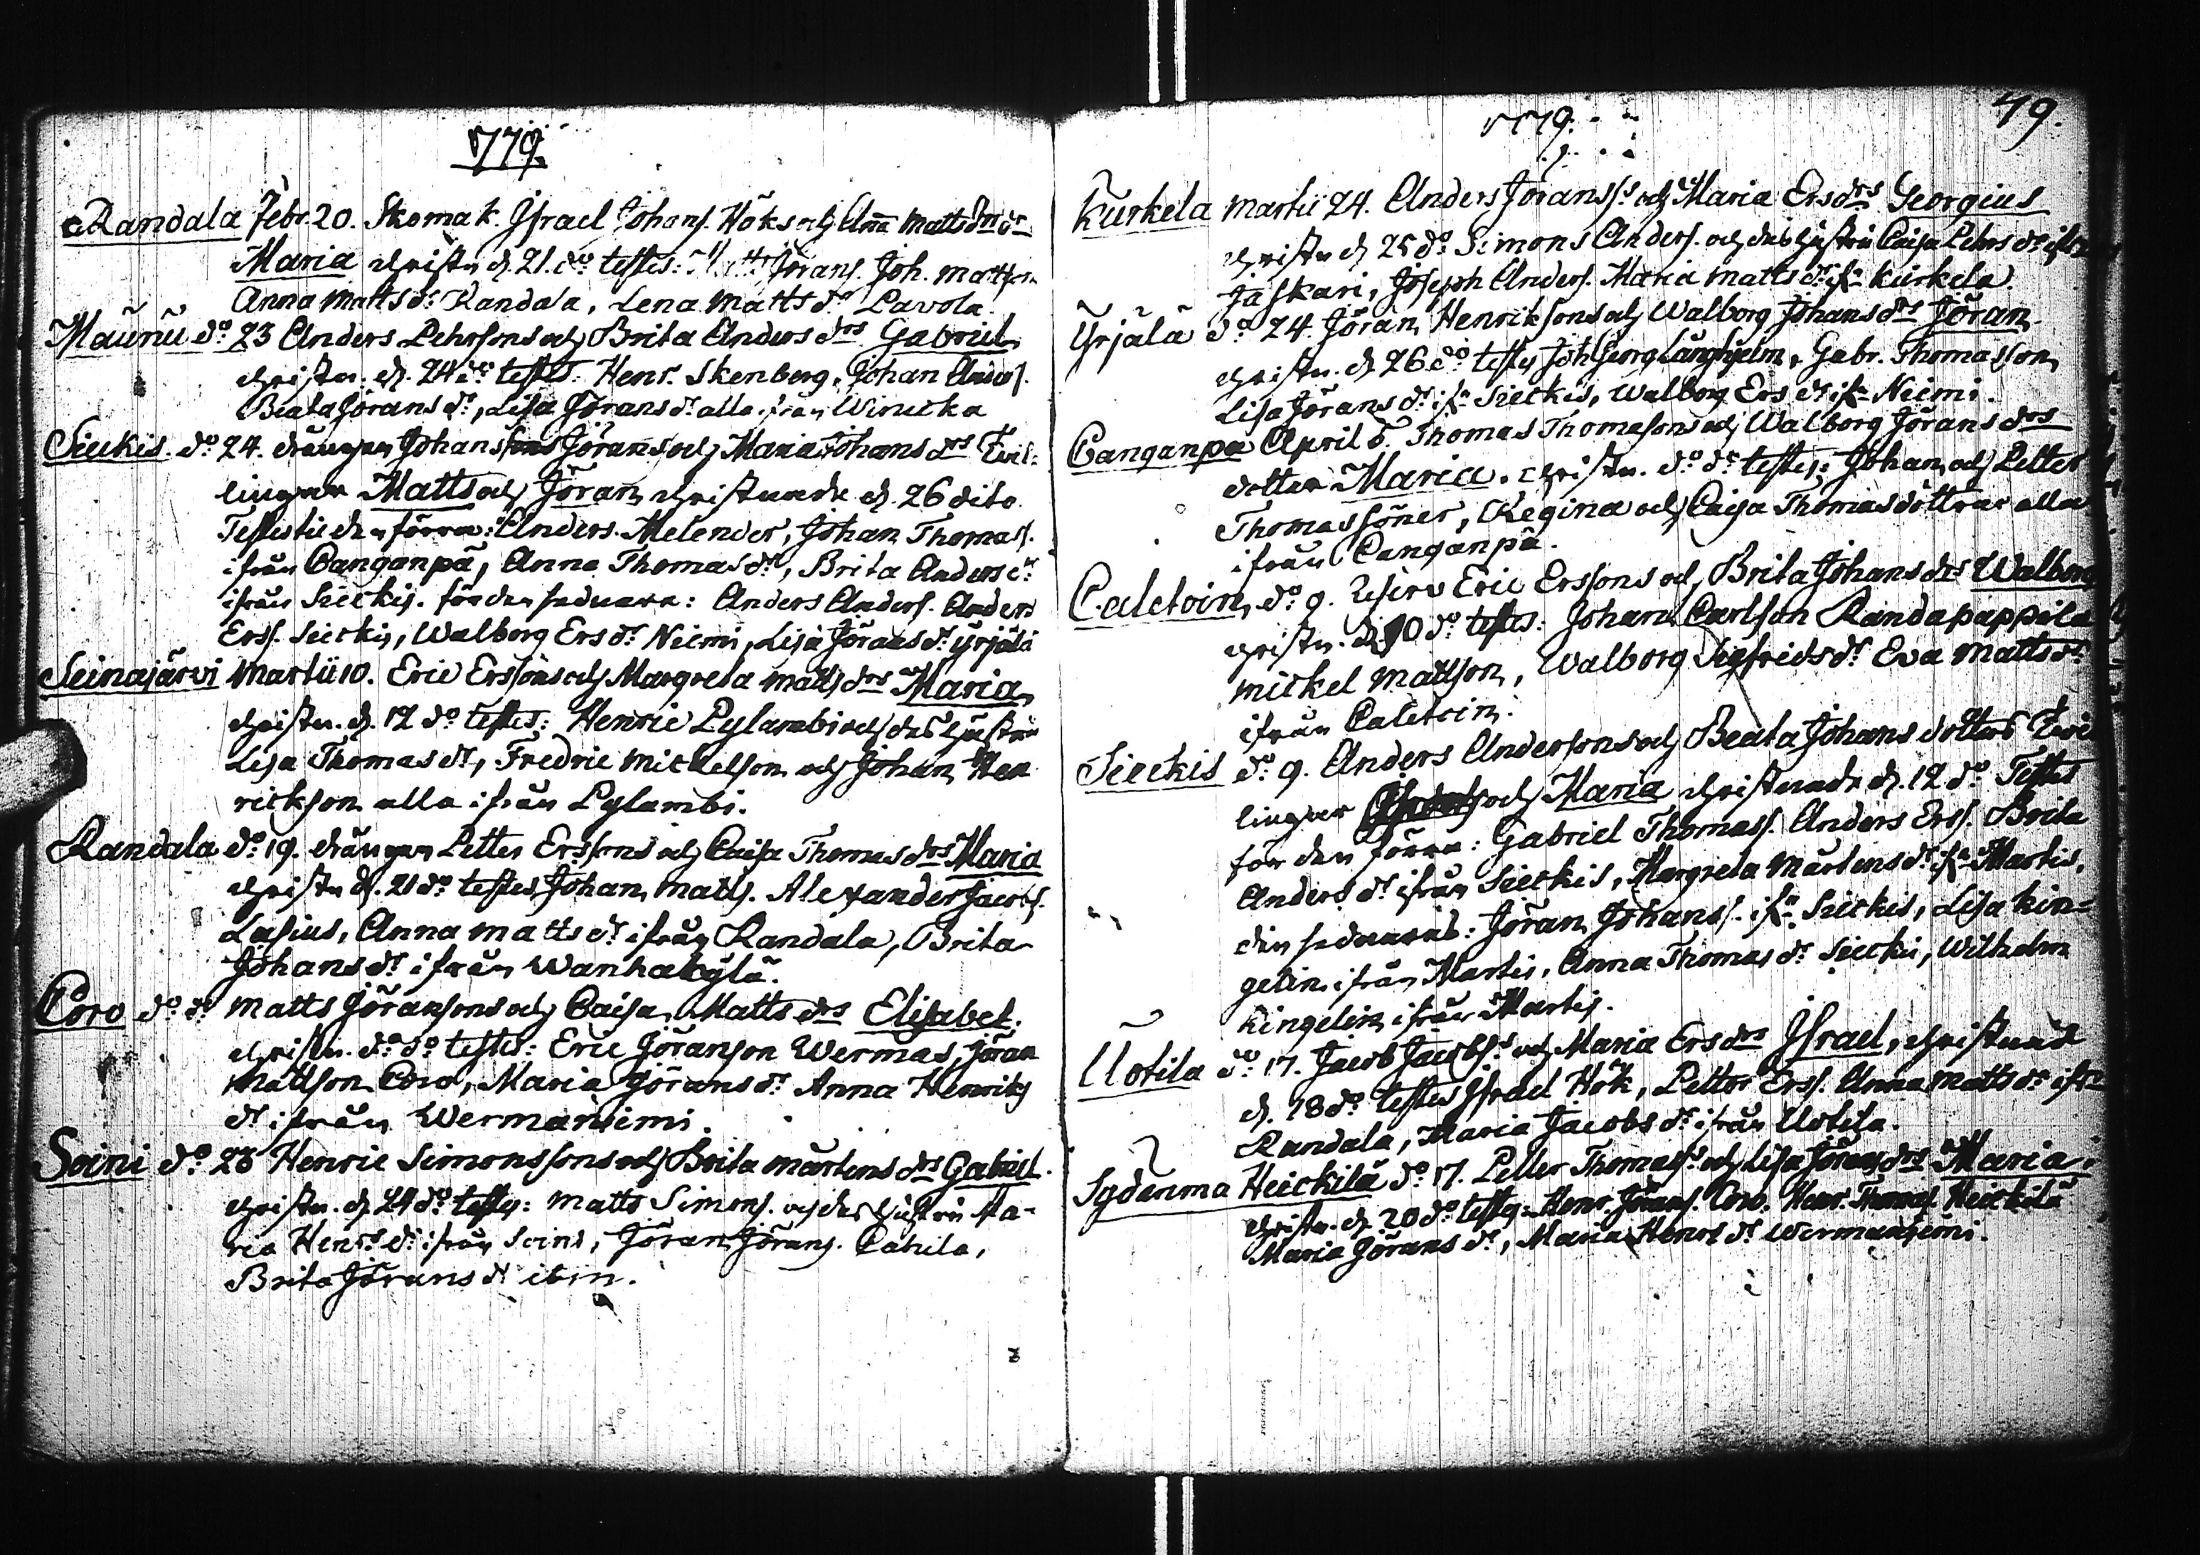 1779.
Randala Febr. 20. Skomak. Israel Johans. Höks och Anna Matts drs
Maria christn d. 21. do testes: Jörans. Joh. Matts.
Anna Matts dr Randala, Lena Matts dr Lavola.
Maunu do 23 Anders Pehrsons och Brita Anders drs Gabriel
christn. d. 24 do testes: Henr. Skenberg, Johan Anders.
Beata Jörans dr, Lisa Jörans dr alla ifrån
Sieckis do 24. drängen Johans Jörans och Maria Johans drs Tvil:
lingar Matts och Jöran christnade d. 26 dito
Testes til den förra: Anders Melender, Johan Thomas.
ifrån Canganpä, Anna Thomas dr, Brita Anders dr
ifrån Sieckis. för den sednare: Anders Anders. Anders
Erss. Sieckis, Walborg Ers dr Niemi, Lisa Jörans dr Yrjälä
Seinajärvi Martii 10. Eric Ersons och Margreta Matts drs Maria
christn. d. 12 do testes: Henric Pylambi och des hustru
Lisa Thomas dr, Fredric Mickelson och Johan Hen
rickson alla ifrån Pylambi.
Randala do 19. drängen Petter Ersons och Caisa Thomas drs Maria
christn d. 21 do testes Johan Matts. Alexander Jacobs.
Lasius, Anna Matts dr ifrån Randala, Brita
Johans dr ifrån Wanhakylä.
Coro do do Matts Jöransons och Caisa Matts drs Elisabet.
christn. do do testes: Eric Jöranson Wermas, Jöran
Mattson Coro, Maria Jörans dr Anna Henrics
dr ifrån Wermaniemi.
Soini do 23 Henric Simonssons och Brita Mårtens drs Gabriel.
christn. d. 24 do testes: Matts Simons. och des hustru Ma-
ria Henrs dr ifrån Soini, Jöran Jörans. Cahila,
Brita Jörans dr ibm.
1779.
79.
Kurkela Martii 24. Anders Jöranss och Maria Ers drs Georgius
christn d. 25 do Simons Anders. och des hustru Caisa Pehrs dr ifrn
Jaskari, Joseph Anders. Maria Matts dr ifn Kurkela.
Yrjälä do 24. Jöran Henriksons och Walborg Johans drs Jöran.
christn. d. 26 do testes Joh Georg Långhjelm, Gabr. Thomasson
Lisa Jörans dr ifn Sieckis, Walborg Ers dr ifn Niemi.
Canganpä April 5. Thomas Thomasons och Walborg Jörans drs
dotter Maria. christn. do do testes: Johan och Petter
Thomassöner, Regina och Caisa Thomasdöttrar alla
ifrån Canganpä.
Caletoin do 9. Eric Erssons och Brita Johans drs Walborg
christn. d. 10 do testes: Johan Carlson Randapappila
Mickel Mattson, Walborg Sigfrids dr Eva Matts dr
ifrån Caletoin.
Sieckis do 9. Anders Andersons och Beata Johans dotters Tvil
lingar och Maria christnade d. 12 do Testes
för den förra: Gabriel Thomass. Anders Erss. Brita
Anders dr ifrån Sieckis, Margreta Mårtens dr ifn Martis,
den sednares: Jöran Johans. ifn Sieckis, Lisa Kin-
gelin ifrån Martis, Anna Thomas dr Sieckis, Wilhelm
Kingelin ifrån Martis.
Uotila do 17. Jacob Jacobs och Maria Ers drs Israel, christnad
d. 18 do testes Israel Hök, Petter Erss. Anna Matts dr ifrn
Randala, Maria Jacobs dr ifrån Uotila.
Sydenma Heickilä do 17. Petter Thomass och Lisa Jörans drs Maria.
christn. d. 20 do testes: Henr. Jörans. Coro. Henr. Thomas. Heickilä
Maria Jörans dr, Maria Henrs dr Wermaniemi.